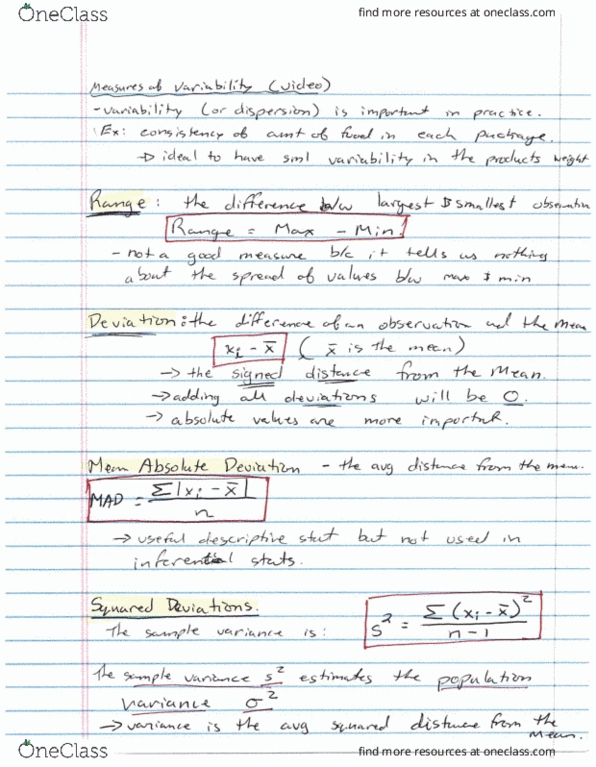 OneClass
find more resources at oneclass.com
Measures of Variability (video)
- variability (or dispersion) is important in practice.
Ex: consistency of amt of food in each package.
→ ideal to have sml variability in the products weight
Range: the difference b/w largest & smallest observation
Range = Max - Min
- not a good measure b/c it tells us nothing
about the spread of values b/w max & min
Deviation: the difference of an observation and the mean
xᵢ - x̄ ( x̄ is the mean)
→ the signed distance from the mean.
→ adding all deviations will be 0.
→ absolute values are more important.
Mean Absolute Deviation - the avg distance from the mean.
MAD = Σ|xᵢ - x̄| / n
→ useful descriptive stat but not used in
inferential stats.
Squared Deviations.
The sample variance is: s² = Σ(xᵢ - x̄)² / n-1
The sample variance s² estimates the population
variance σ²
→ variance is the avg squared distance from the
mean.
OneClass
find more resources at oneclass.com